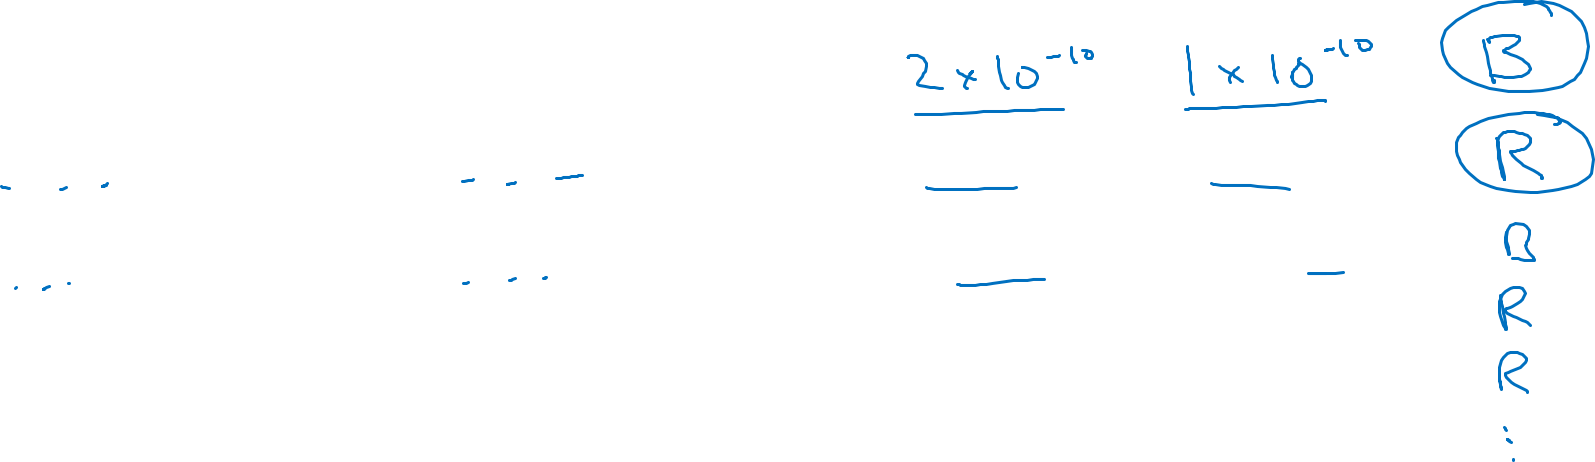 2 × 10⁻¹⁰ 1 × 10⁻¹⁰ B
... ... — — R
... ... — — B
R
R
⋮